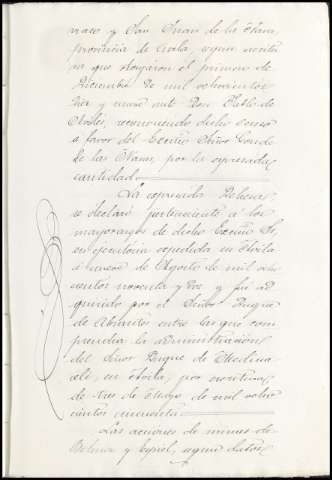 y San Juan de la Nava,
provincia de Avila, segun escritu
ra que otorgaron el primero de
Diciembre de mil ochocientos
diez y nueve ante Don Pablo de
reconociendo dicho censo
a favor del Excmo Señor Conde
de las Navas, por la expresada
cantidad.
La expresada Dehesa
se declaró perteneciente a los
mayorazgos de dicho Excmo Sr.
en ejecutoria expedida en Avila
a nueve de Agosto de mil ocho
cientos noventa y tres y fué ad
quirido por el Señor Duque
de Abrantes entre las que com
prendia la administracion
del Señor Duque de Medina
celi, en Avila, por escritura
de tres de Mayo de mil ocho
cientos cincuenta
Las acciones de minas de
Belmez y Espiel, segun datos